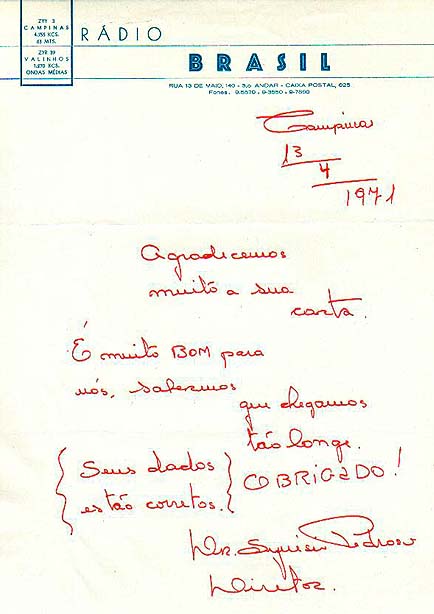 ZYY 3
CAMPINAS
4.755 KCS.
63 MTS.
ZYR 39
VALINHOS
1.270 KCS.
ONDAS MÉDIAS
RÁDIO
BRASIL
RUA 13 DE MAIO, 140 - 3.o ANDAR - CAIXA POSTAL, 625
Fones, 9.5570 - 9-3550 - 9-7890
Campinas
13
4
1971
Agradecemos
muito a sua
carta.
É muito BOM para
nós, sabermos
que chegamos
tão longe.
{ Seus dados
estão corretos. }
OBRIGADO!
Pedroso
Diretor.